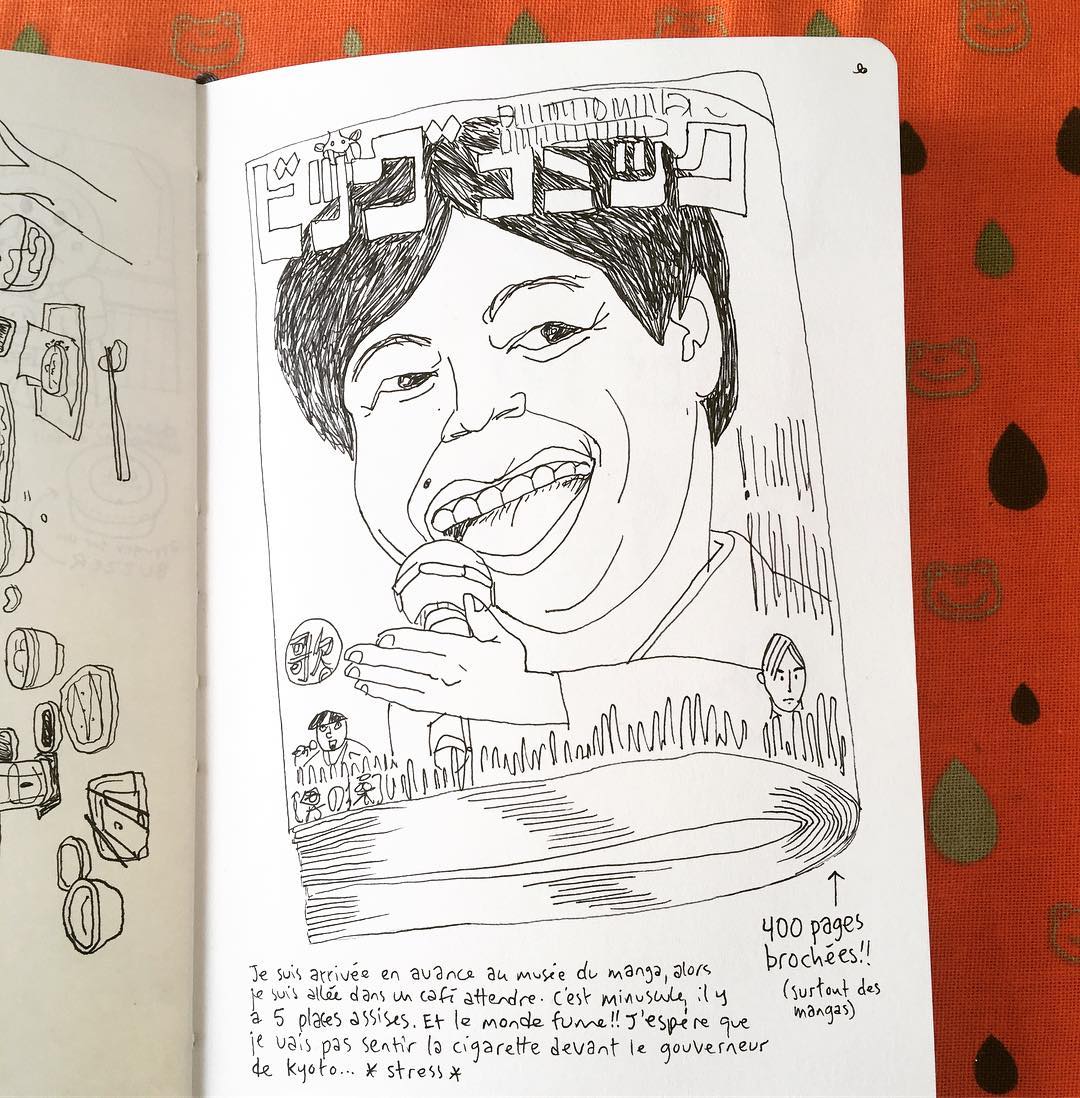 ビッグコミック
歌
400 pages
brochées!!
(surtout des
mangas)
Je suis arrivée en avance au musée du manga, alors
je suis allée dans un café attendre. C'est minuscule, il y
a 5 places assises. Et le monde fume!! J'espère que
je vais pas sentir la cigarette devant le gouverneur
de Kyoto... * stress *
BUZZER